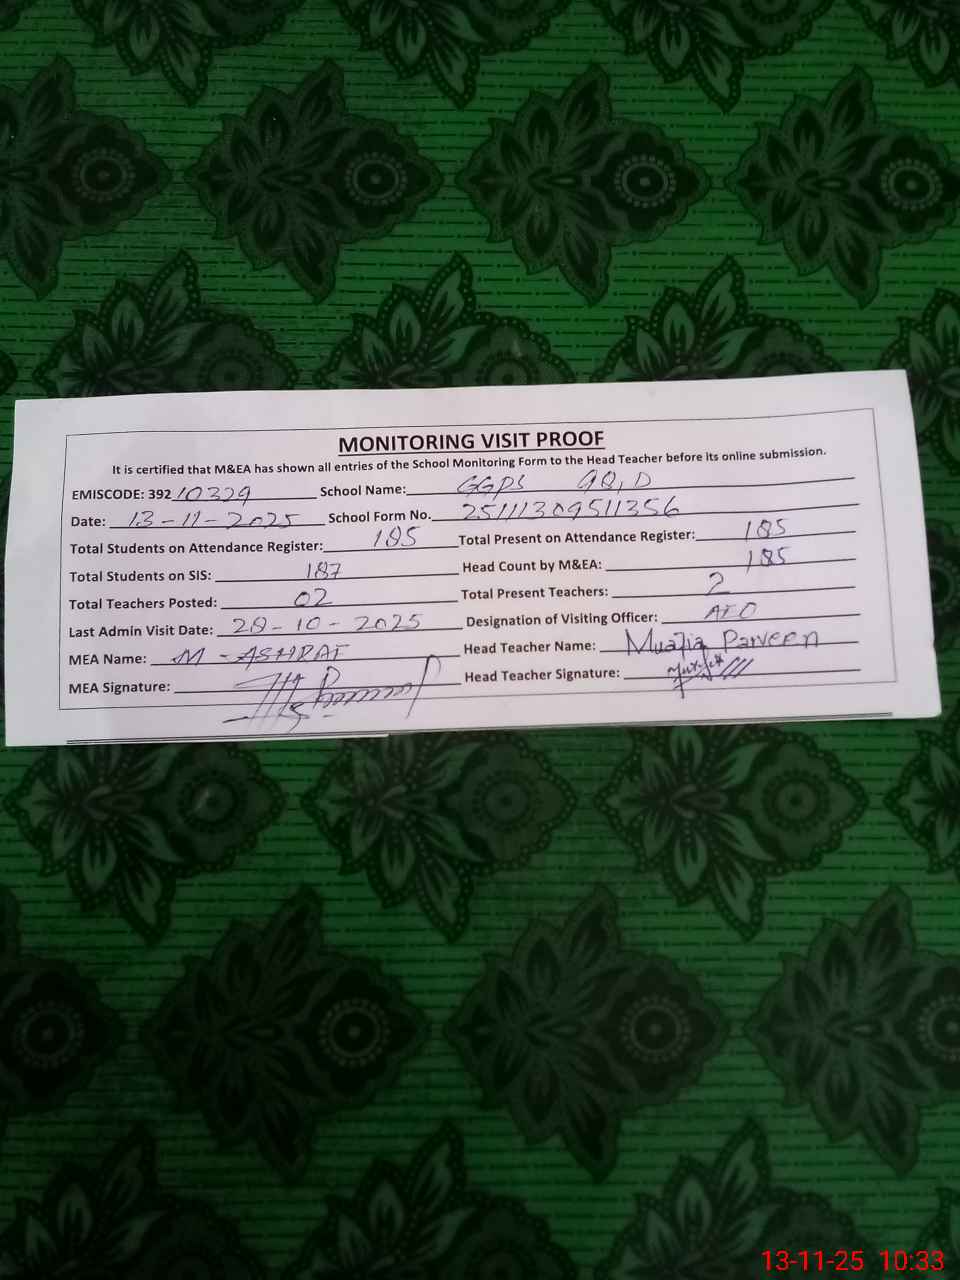 MONITORING VISIT PROOF
It is certified that M&EA has shown all entries of the School Monitoring Form to the Head Teacher before its online submission.
EMISCODE: 392 10329 School Name: GGPS 9Q,D
Date: 13-11-2025 School Form No. 25111309511356
Total Students on Attendance Register: 185 Total Present on Attendance Register: 185
Total Students on SIS: 187 Head Count by M&EA: 185
Total Teachers Posted: 02 Total Present Teachers: 2
Last Admin Visit Date: 28-10-2025 Designation of Visiting Officer: AEO
MEA Name: M-ASHRAF Head Teacher Name: Parveen
MEA Signature: Head Teacher Signature:
13-11-25 10:33